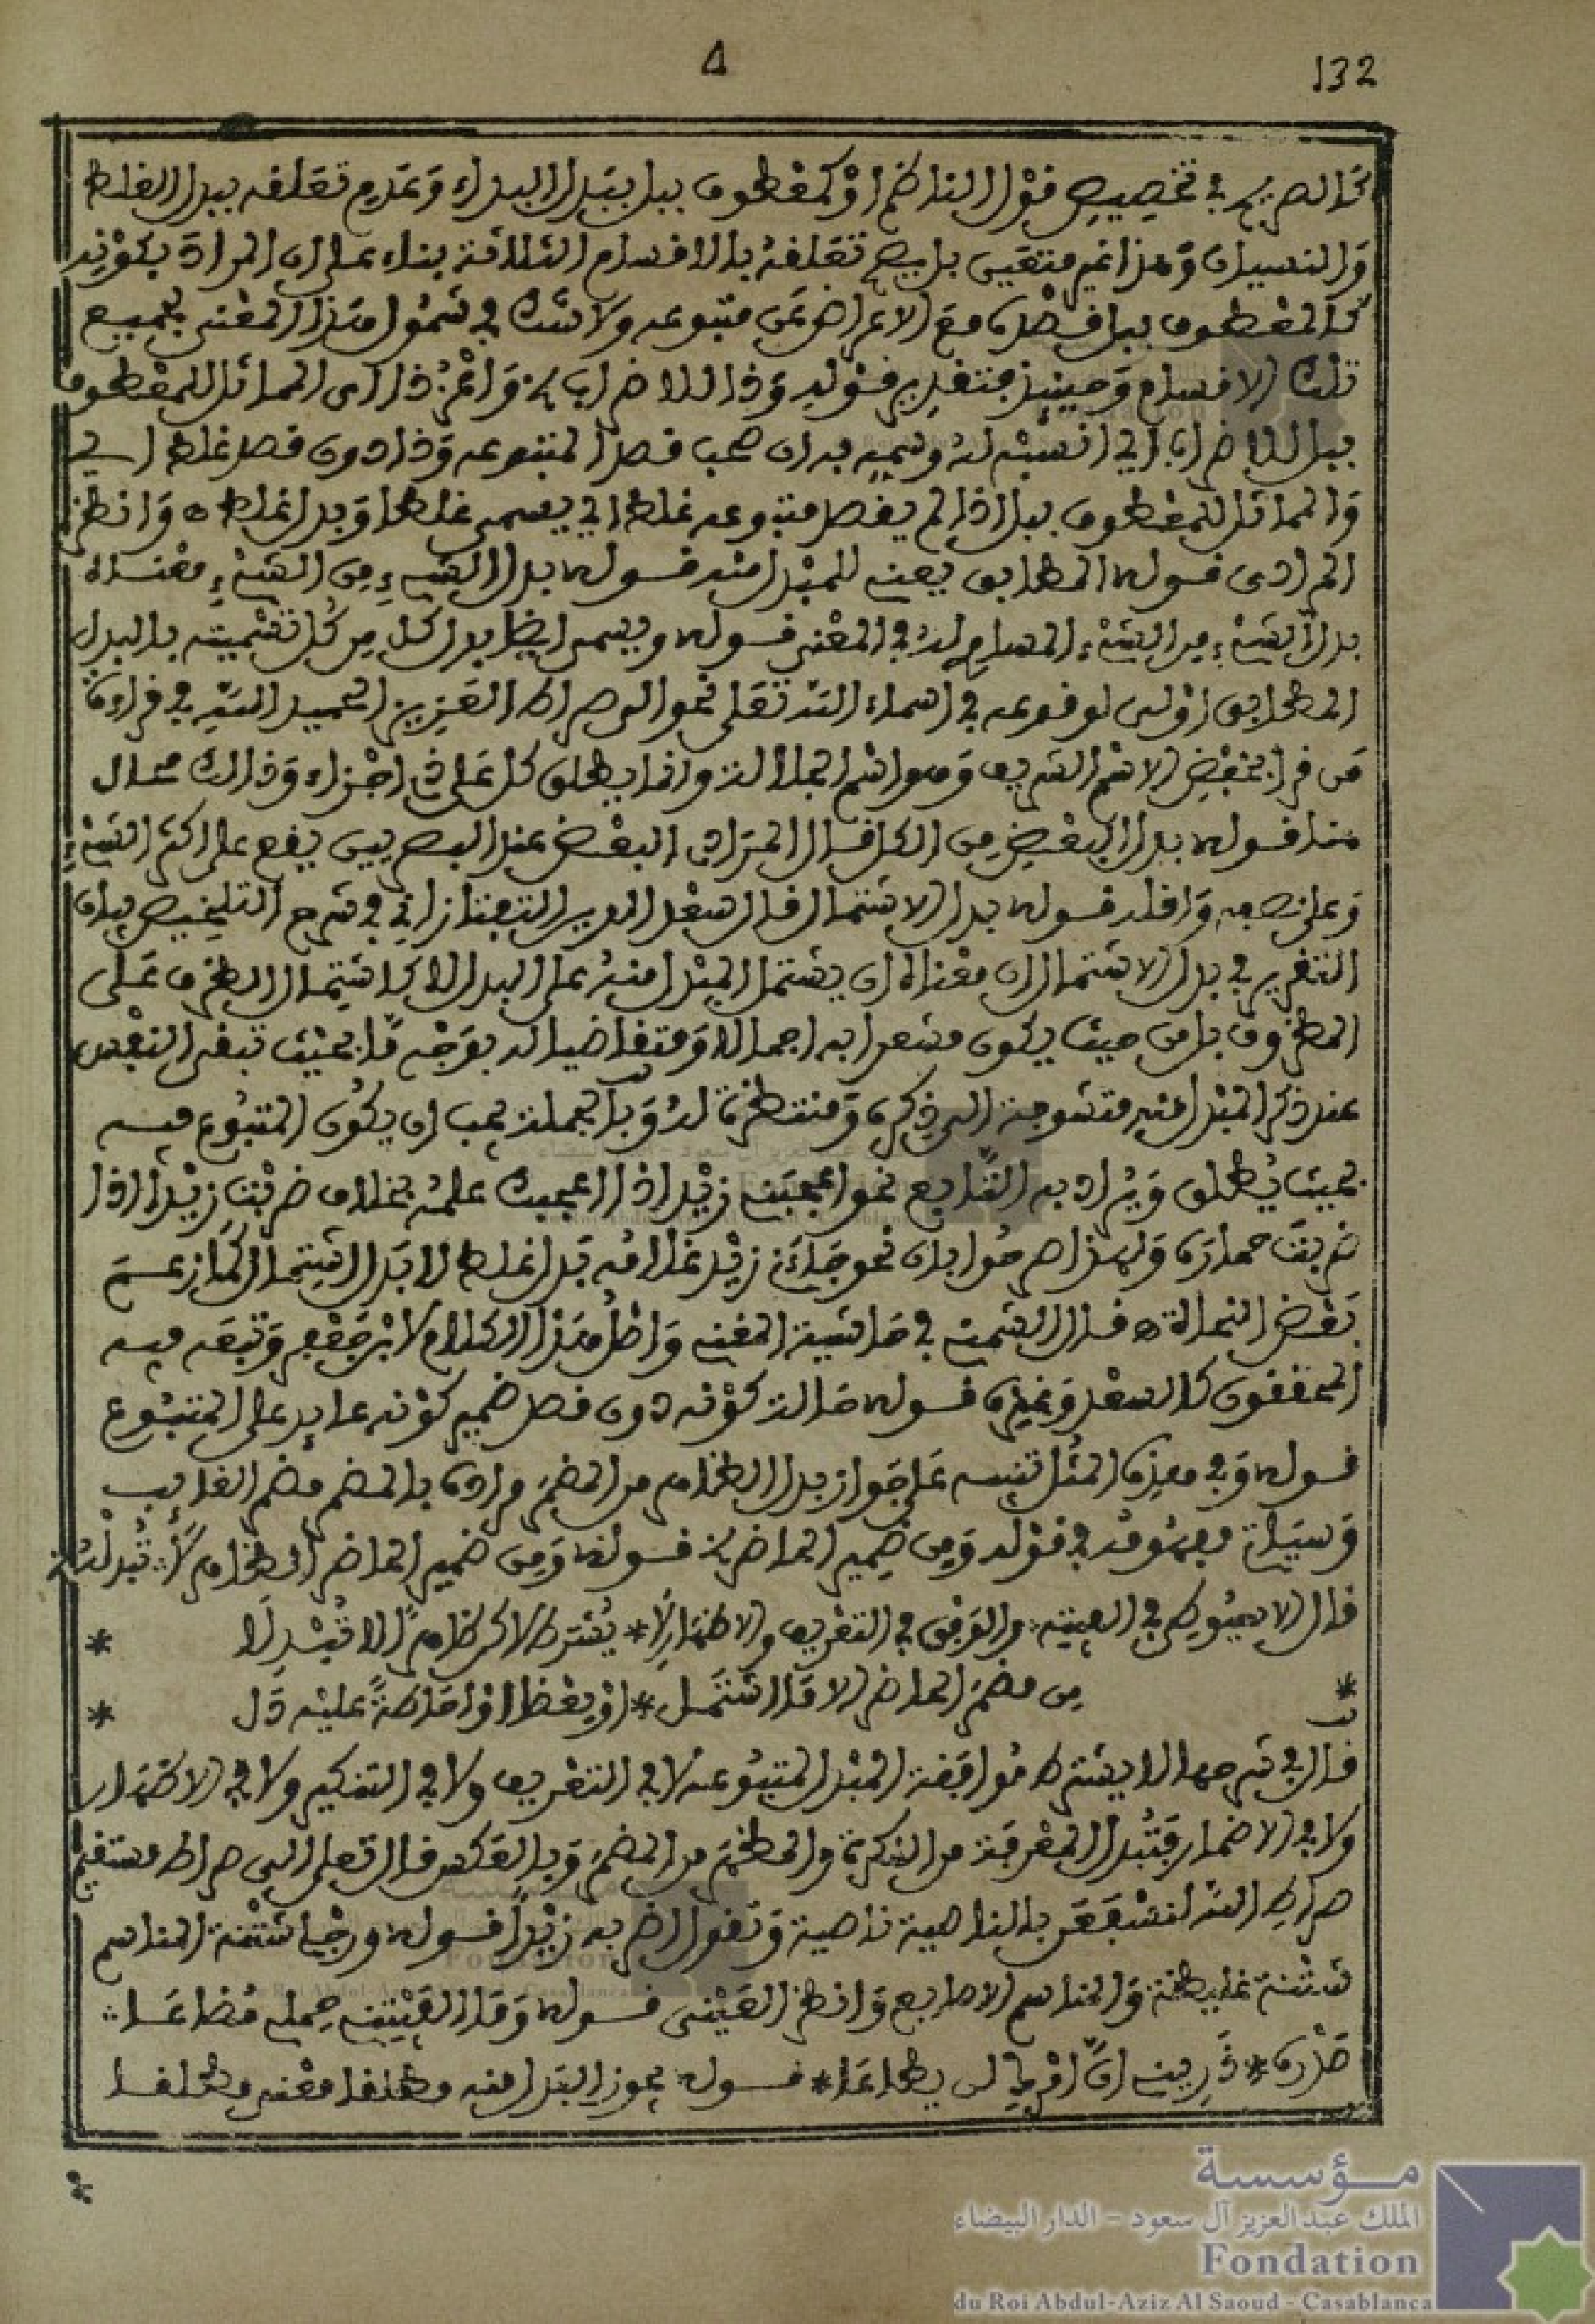 132
كالصريح في تخصيص قول الناظم او كمعطوف ببل ببدل البداء وعدم تعلقه ببدل الغلط
والنسيان وهذا غير متعين بل يصح تعلقه بالاقسام الثلاثة بناء على ان المراد بكونه
كالمعطوف ببل قصده مع الاعراض عن متبوعه ولا شك في شمول هذا المعنى لجميع
تلك الاقسام وحينئذ فتقدير قوله وذا للاضراب اعز ذا اى المماثل للمعطوف
ببل للاضراب اي انسبه له وسمه به ان صحب قصد المتبوعه وذا دون قصد غلط اي
والمماثل للمعطوف ببل اذا لم يقصد متبوعه غلط اي يسمى غلطا وبدل غلط ه وانظر
المرادى قوله المطابق يعني للمبدل منه قوله بدل الشيء من الشيء معناه
بدل الشيء من الشيء المساوي له في المعنى قوله ويسمى ايضا بدل كل من كل تسميته بالبدل
المطابق اولى لوقوعه في اسماء الله تعلى نحو الى صراط العزيز الحميد الله في قراءة
من قرا بخفض الاسم الشريف وهو اسم الجلالة وانما يطلق كل على ذي اجزاء وذالك محال
هنا قوله بدل البعض من الكل قال المرادي البعض عند البصريين يقع على اكثر الشيء
وعلى نصفه واقله قوله بدل الاشتمال قال سعد الدين التفتازاني في شرح التلخيص بيان
التقرير في بدل الاشتمال ان معناه ان يشتمل المبدل منه على البدل لا كاشتمال الظرف على
المظروف بل من حيث يكون مشعرا به اجمالا ومتقاضيا له بوجه ما بحيث تبقى النفس
عند ذكر المبدل منه متشوقة الى ذكره ومنتظرة له وبالجملة يجب ان يكون المتبوع فيه
بحيث يطلق ويراد به التابع نحو اعجبني زيد اذا اعجبك علمه بخلاف ضربت زيدا اذا
ضربت حماره ولهذا صرحوا بان نحو جاءني زيد غلامه بدل غلط لا بدل اشتمال كما زعم
بعض النحاة ه قال الشمني في حاشية المغني واصل هذا الكلام لابن جعفر وتبعه فيه
المحققون كالسعد وغيره قوله حالة كونه دون قصد ضمير كونه عايد على المتبوع
قوله وفي هذه المثل تنبيه على جواز بدل الظاهر من المضمر مراده بالمضمر مضمر الغايب
وسياتي مفهومه في قوله ومن ضمير الحاضر قوله ومن ضمير الحاضر الظاهر لا تبدله
قال السيوطي في الفيته والوفق في التعريف والاظهار لا * يشترط لاكن ظاهرا لا تبدلا *
* من مضمر الحاضر الا ما اشتمل * او بعضا او احاطة عليه دل *
قال في شرحها لا يشترط موافقة البدل لمتبوعه لا في التعريف ولا في التنكير ولا في الاظهار
ولا في الاضمار فتبدل المعرفة من النكرة والمظهر من المضمر وبالعكس قال تعلى الى صراط مستقيم
صراط الله لنسفعن بالناصية ناصية وتقول اضربه زيدا قوله ورجلي شثنة المناسم
شثنة غليظة والمناسم الاصابع وانظر العيني قوله وما الفيتني حلمي مضاعا
صدره * ذريني ان امرك لن يطاعا * قوله يجوز البدل منه مطلقا معنى
مؤسسة
الملك عبد العزيز آل سعود - الدار البيضاء
Fondation
du Roi Abdul-Aziz Al Saoud - Casablanca